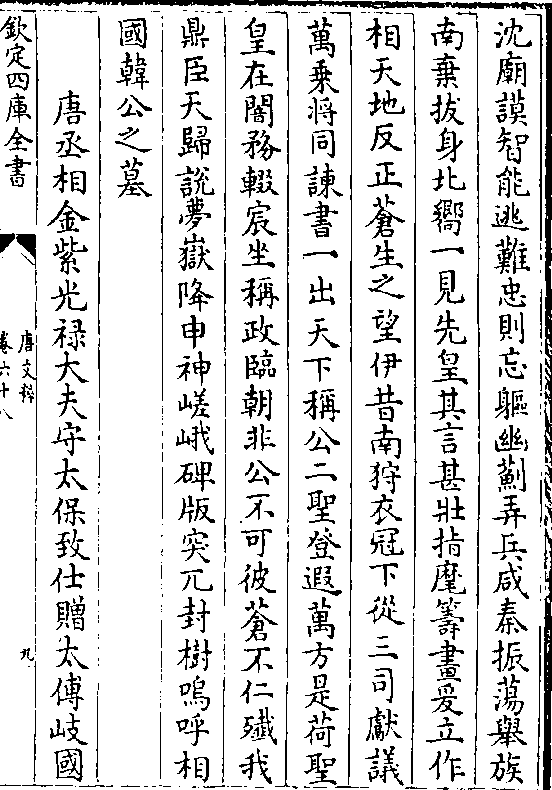 沈廟謨智能逃難忠則忘軀幽薊弄兵咸秦振蕩舉族
南棄拔身北嚮一見先皇其言甚壯指麾籌畫爰立作
相天地反正蒼生之望伊昔南狩衣冠下從三司獻議
萬乗将同諌書一出天下稱公二聖登遐萬方是荷聖
皇在闇務輟宸坐稱政臨朝非公不可彼蒼不仁殱我
鼎臣天歸說夢嶽降申神嵯峨碑版突兀封樹嗚呼相
國韓公之墓
唐丞相金紫光禄大夫守太保致仕贈太傅岐國
欽定四庫全書
唐文粹
卷六十八
九